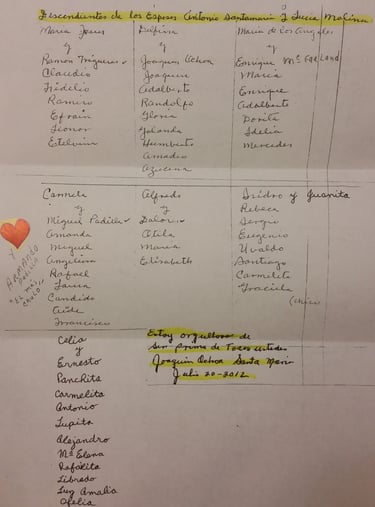 Descendientes de los Esposos Antonio Santamaria y Lucia Molina
Maria Jesus
y
Ramon Trigueros
Claudio
Fidelio
Ramiro
Efrain
Leonor
Etelvina
Delfina
y
Joaquin Ochoa
Joaquin
Adalberto
Randolfo
Gloria
Yolanda
Humberto
Amadeo
Azucena
Maria de los Angeles
y
Enrique Mc Farland
Maria
Enrique
Adalberto
Dorita
Idelia
Mercedes
Carmela
y
Miguel Padilla
Amanda
Miguel
Angelina
Rafael
Laura
Candido
Aide
Francisco
Y
ARMANDO
PADILLA
"EL MAS
CHULO"
Alfredo
y
Dalores
Atila
Maria
Elizabeth
Isidro y Juanita
Rebeca
Sergio
Eugenio
Ubaldo
Santiago
Carmelita
Graciela
(chica
Celia
y
Ernesto
Panchita
Carmelita
Antonio
Lupita
Alejandro
Mª Elena
Rafelita
Librado
Luz Amalia
Ofelia
Estoy orgulloso de
ser primo de Todos ustedes
Joaquin Ochoa Santa Maria
Julio 20-2012